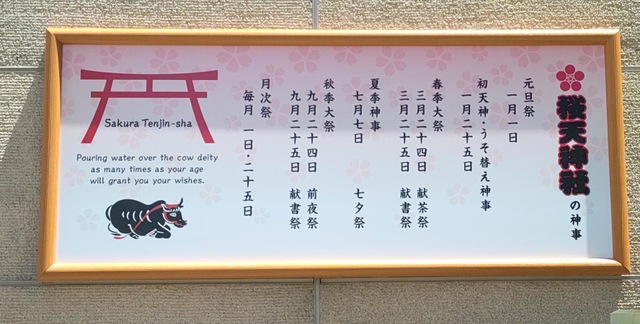 桜天神社の神事
元旦祭
一月一日
初天神・うそ替え神事
一月二十五日
春季大祭
三月二十四日 献茶祭
三月二十五日 献書祭
夏季神事
七月七日 七夕祭
秋季大祭
九月二十四日 前夜祭
九月二十五日 献書祭
月次祭
毎月 一日・二十五日
Sakura Tenjin-sha
Pouring water over the cow deity
as many times as your age
will grant you your wishes.